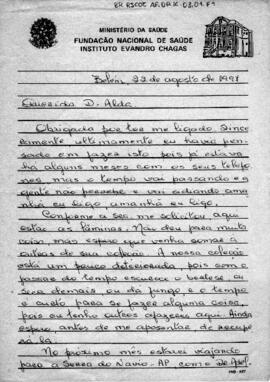 BR RJCOC AF.DP.IC.03.04.F1
MINISTÉRIO DA SAÚDE
FUNDAÇÃO NACIONAL DE SAÚDE
INSTITUTO EVANDRO CHAGAS
Belém 22 de agosto de 1991
Querida D. Alda
Obrigada por ter me ligado. Since
ramente ultimamente eu havia pen
sado em fazer isto pois já estava
há alguns meses com os seus telefo
nes mas o tempo vai passando e a
gente não percebe e vai adiando ama
nhã eu ligo, amanhã eu ligo.
Conforme a sra me solicitou aqui
estão as lâminas. Não deu para muita
coisa mas espero que venha somar a
outras de sua coleção. A nossa coleção
está um pouco deteriorada, pois com o
passar do tempo escurece o
demais ou dá fungo e o tempo
é curto para se fazer alguma coisa,
pois eu tenho outros afazeres aqui. Ainda
espero antes de me aposentar de recupe
rá la.
No próximo mês estarei viajando
para a Serra do Navio-AP com o Dr.